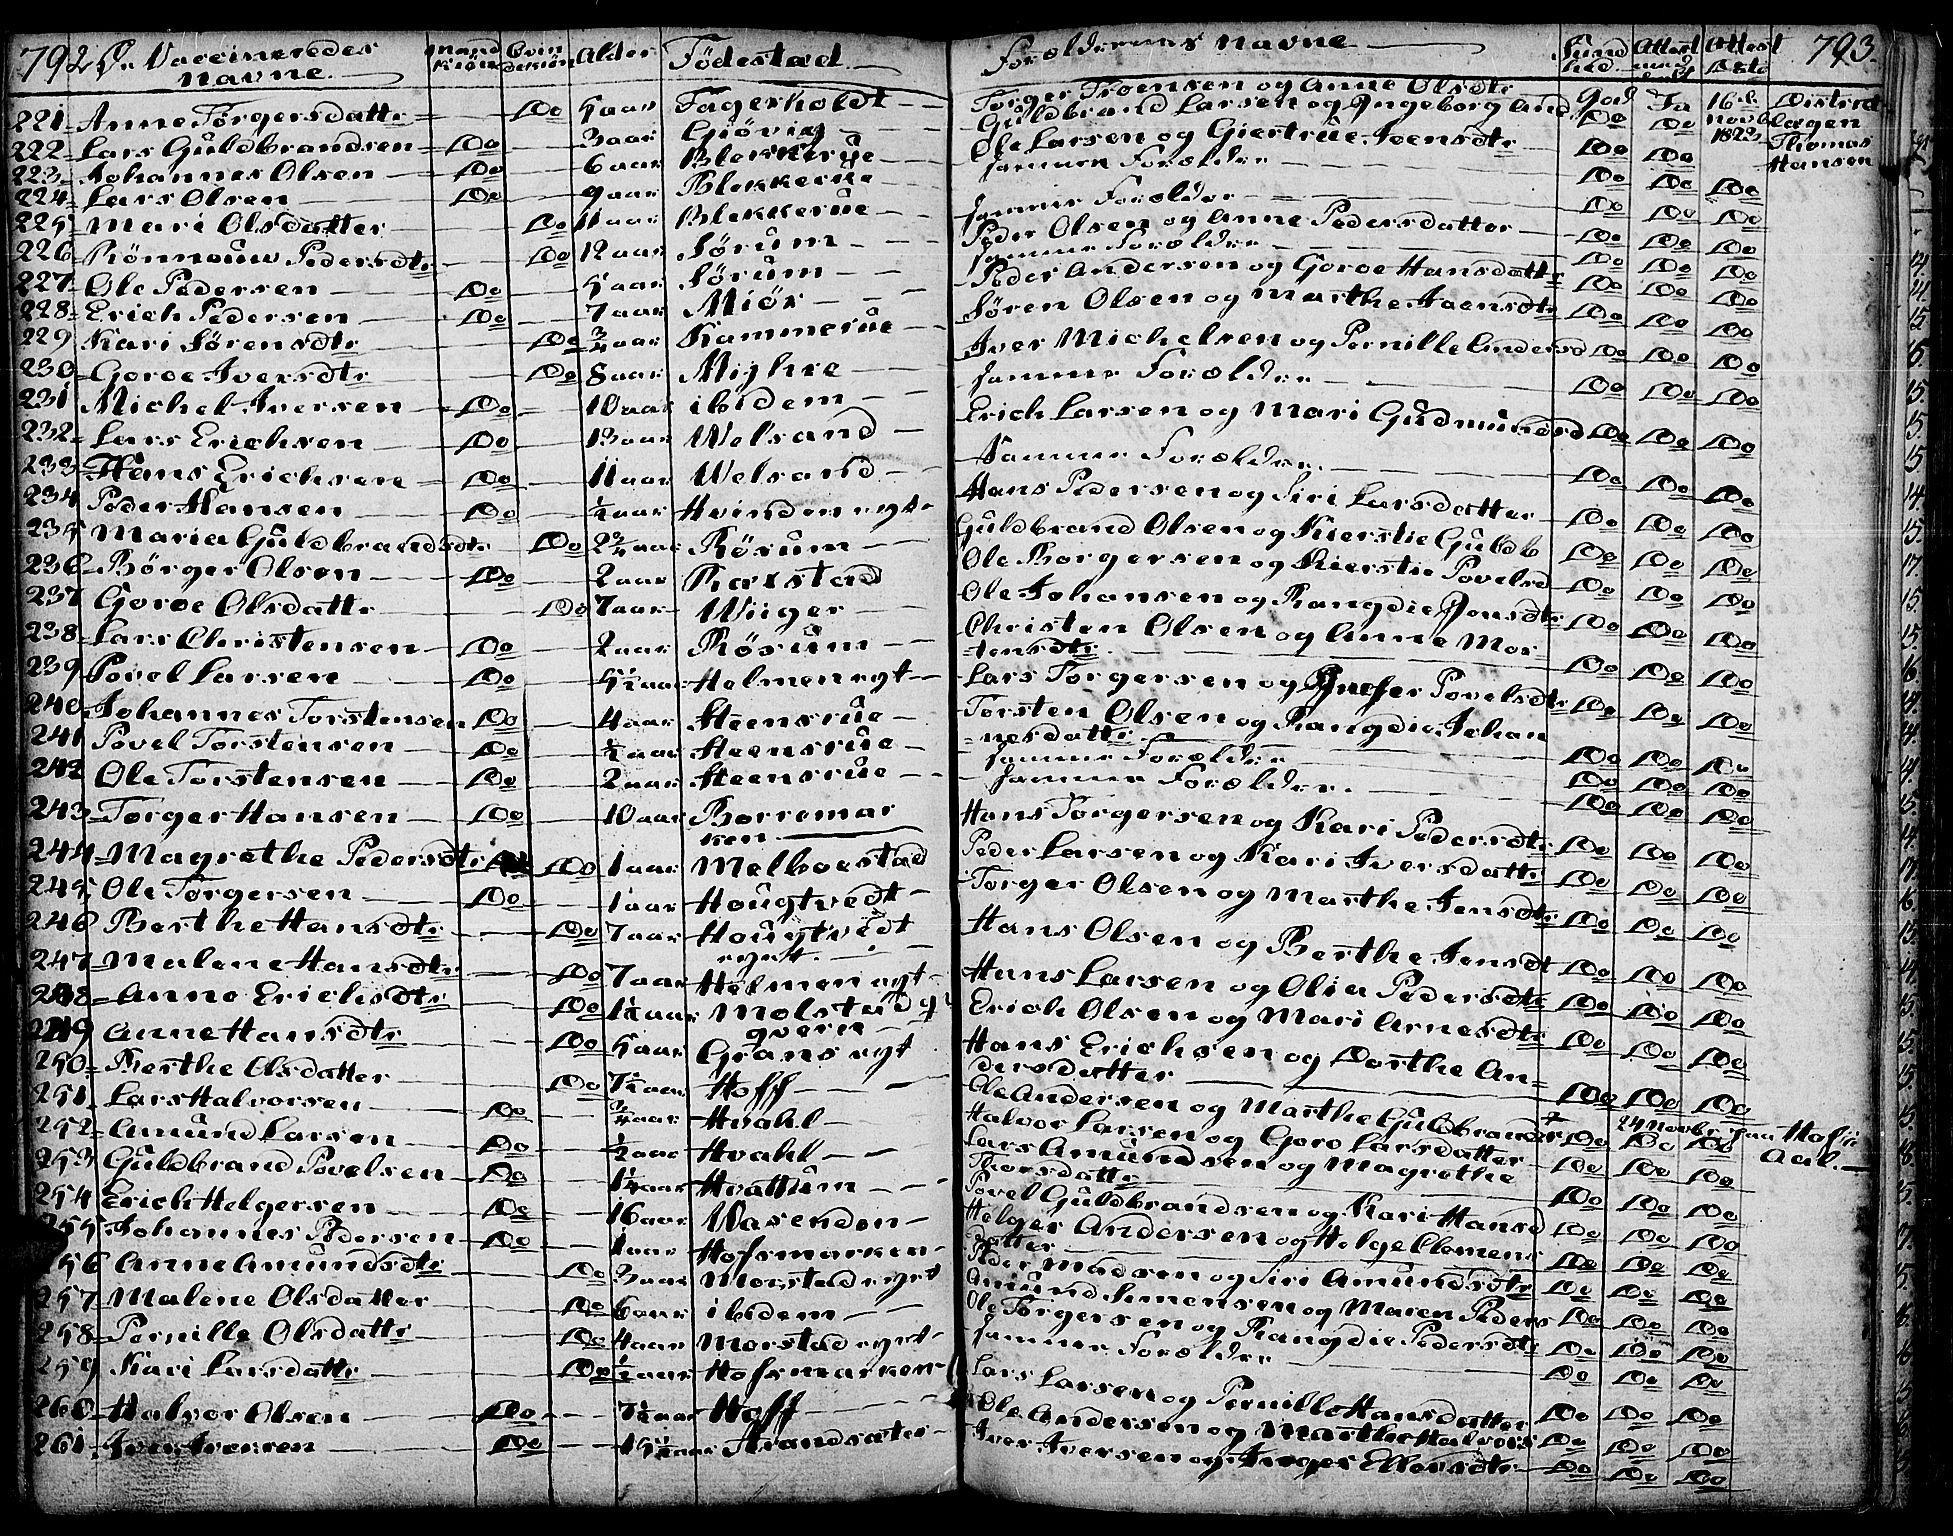 792 De Vaccineredes Navne. Mand kiön Qvin dekiön Alder Födestad
221 Anne Torgersdattr Do 5 aar Fagerholdt
222 Lars Guldbrandsen Do 3 aar Giövig
223 Johannes Olsen Do 6 aar Blekkerue
224 Lars Olsen Do 9 aar Blekkerue
225 Mari Olsdatter Do 11 aar Blekkerue
226 Rönnouw Pedersdtr Do 12 aar Sørum
227 Ole Pedersen Do 5 aar Sørum
228 Erich Pedersen Do 7 aar Miör
229 Kari Sørensdtr Do 3/4 aar Kammerue
230 Goroe Iversdtr Do 8 aar Myhre
231 Michel Iversen Do 10 aar ibidem
232 Lars Erichsen Do 13 aar Welsand
233 Hans Erichsen Do 11 aar Welsand
234 Peder Hansen Do 1/2 aar Hvinden eyt
235 Maria Guldbrandsdtr Do 2 1/4 aar Røsum
236 Børger Olsen Do 2 aar Raxstad
237 Goroe Olsdattr Do 7 aar Wiiger
238 Lars Christensen Do 2 aar Røsum
239 Povel Larsen Do 5 1/2 aar Helmen eyt
240 Johannes Torstensen Do 4 aar Steensrue
241 Povel Torstensen Do 1/2 aar Steensrue
242 Ole Torstensen Do 2 aar Steensrue
243 Torger Hansen Do 10 aar Borremar
ken
244 Magrethe Pedersdtr Do 1 aar Melboestad
245 Ole Torgersen Do 1 aar Hougtvedt
246 Berthe Hansdtr Do 7 aar Hougtvedt
eyt.
247 Malene Hansdtr Do 7 aar Helmen eyt
248 Anne Erichsdtr Do 1 1/2 aar Molstad
qvern
249 Anne Hansdtr Do 5 aar Grans eyt
250 Berthe Olsdatter Do 7 1/2 aar Hoff
251 Lars Halvorsen Do 3/4 aar Hvahl
252 Amund Larsen Do 1/2 aar Hvahl
253 Guldbrand Povelsen Do 1 1/4 aar Hvattum
254 Erich Helgersen Do 16 aar Wasenden
255 Johannes Pedersen Do 1 aar Hofsmarken
256 Anne Amundsdtr Do 3 aar Morstad eyet
257 Malene Olsdatter Do 6 aar ibidem
258 Pernille Olsdattr Do 4 aar Morstad eyet
259 Kari Larsdattr Do 1/2 aar Hofsmarken
260 Halvor Olsen Do 7 1/2 aar Hoff
261 Iver Iversen Do 15 1/2 aar Strandsæter
Forældrenes Navne Sund hed Attest med deelt Attest Dato 793.
Torger Troensen og Anne Olsdtr God Ja 16de Distrct
Guldbrand Larsen og Ingeborg And Do Do Novb. lægen
Ole Larsen og Giertrue Joensdtr Do Do 1823 Thomas
samme Forældre Do Do Do Hansen
samme Forælder Do Do Do
Peder Olsen og Anne Pedersdatter Do Do Do
samme Forældre Do Do Do
Peder Andersen og Goroe Hansdattr Do Do Do
Søren Olsen og Marthe Joensdtr Do Do Do
Iver Michelsen og Pernille Andersd Do Do Do
samme Forældre Do Do Do
Erich Larsen og Mari Gudmundsd Do Do Do
Samme Forældre Do Do Do
Hans Pedersen og Siri Larsdatter Do Do Do
Guldbrand Olsen og Kierstie Guldb Do Do Do
Ole Borgersen og Kierstie Povelsd Do Do Do
Ole Johansen og Rangdie Jonsdtr Do Do Do
Christen Olsen og Anne Mor
tensdtr. Do Do Do
Lars Torgersen og Povelsdtr Do Do Do
Torsten Olsen og Rangdie Johan
nesdattr Do Do Do
samme Forældre Do Do Do
samme Forældre. Do Do Do
Hans Torgersen og Kari Pedersdtr Do Do Do
Peder Larsen og Kari Iversdattr Do Do Do
Torger Olsen og Marthe Jensdtr Do Do Do
Hans Olsen og Berthe Jensdt Do Do Do
Hans Larsen og Olia Pedersdtr Do Do Do
Erich Olsen og Mari Arnesdtr Do Do Do
Hans Erichsen og Dorthe An=
dersdatter Do Do Do
Ole Andersen og Marthe Guldbrandsd 24 Novbr
Halvor Larsen og Goro Larsdatter Do Do Do
Lars Amundsen og Magrethe
Thorsdattr Do Do Do
Povel Guldbrandsen og Kari Hansd Do Do Do
Helger Andersen og Helge Clemens
datter Do Do Do
Peder Madsen og Siri Amundsdtr Do Do Do
Amund Simensen og Maren Peders Do Do Do
Ole Torgersen og Rangdie Pedersdtr Do Do Do
samme Forældre Do Do Do
Lars Larsen og Pernille Hansdatter Do Do Do
Ole Andersen og Marthe Halvors Do Do Do
Iver Iversen og Ellevsdtr Do Do Do